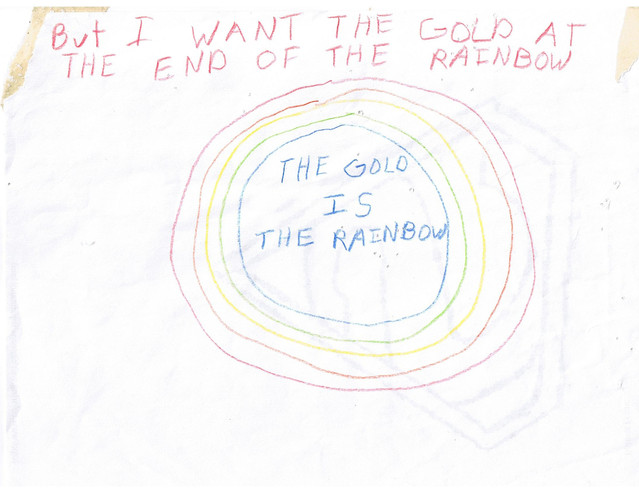 But I WANT THE GOLD AT
THE END OF THE RAINBOW
THE GOLD
IS
THE RAINBOW